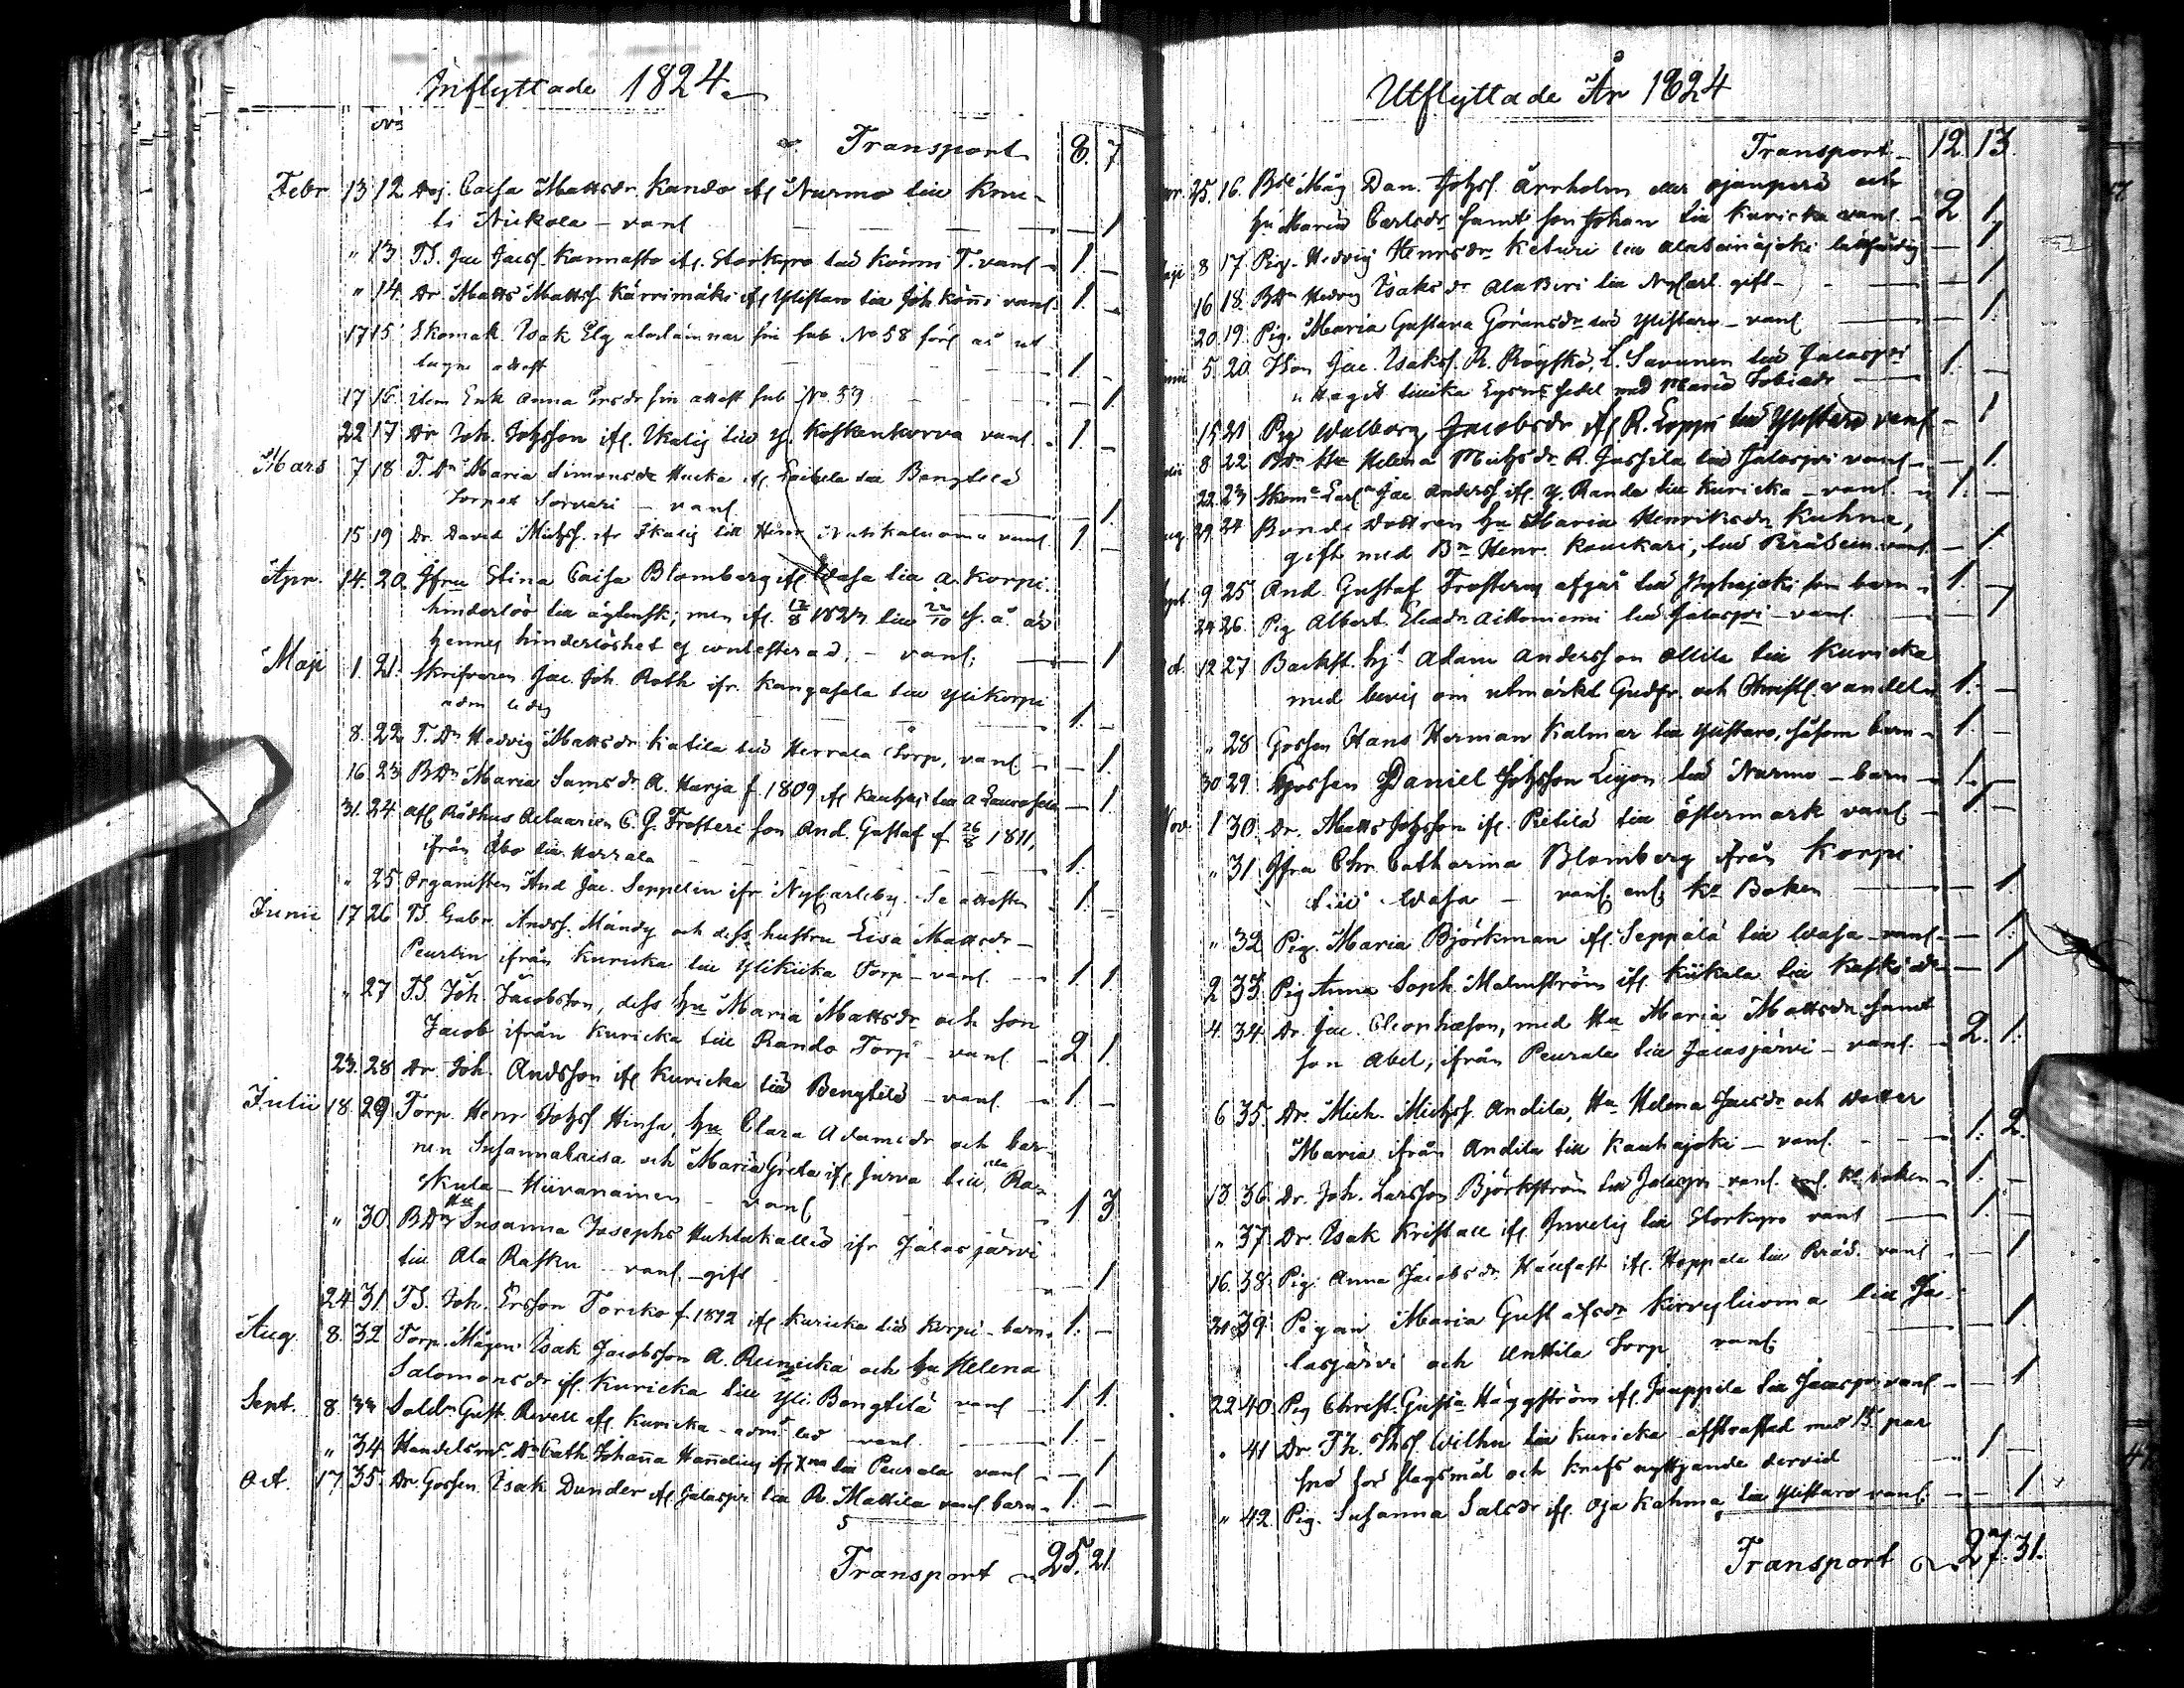 Inflyttade 1824
No
Transport 8. 7
Febr 13 12 Pig. Caisa Mattsdr Kando ifl Nurmo till Kru-
ti Nickola - vanl 1
" 13 TS. Jac Jacsf. Kannasto ifl. Storkyro till Könni T. vanl 1.
" 14. Dr Matts Mattsf Kärrimäki ifl Ylistaro till Joh Könni vanl. 1.
17 15 Skomak Isak Elg sin sub No 58 förl år ut
tagne attest 1.
17 16 Item Enk Anna Ersdr sin attest sub No 59 1.
22 17 Dr Joh. Johsson ifl. Ikalis till Y. Koskenkorva vanl 1.
Mars 7 18 T. Dr Maria Simonsdr ifl. till Bengtilä
Torpet Sorvari - vanl 1.
15 19 Dr. David Michsf. ifr Ikalis till Henr vanl. 1.
Apr. 14. 20. Jfru Stina Caisa Blomberg ifl Wasa till A. Korpi
hinderlös till äktensk; men ifl. 12/8 1823 till 22/10 s. å. är
hennes hinderlöshet ej - vanl; 1
Maji 1. 21. Skrifvaren Jac. Joh. Roth ifr. Kangasala till Ylikorpi
adm ledig 1.
8. 22 T. Dr Hedvig Mattsdr Katila till Herrala Torp, vanl 1.
16. 23 BDr Maria Samsdr A. Harja f. 1809 ifl Kauhaj till A Laurosela 1.
31. 24. Afl Rådhus Actuarien C. G. Frosteri son And. Gustaf f. 26/8 1811,
ifrån Åbo till Herrala 1.
" 25 Organisten And Jac. Seppelin ifr. NyCarleby. Se attesten 1.
Junii 17 26 TS. Gabr. Andsf. Mändy och dess hustru Lisa Mattsdr
Peurlin ifrån Kuricka till Ylikiika Torp - vanl. 1 1
" 27 TS. Joh. Jacobsson, dess hu Maria Mattsdr och son
Jacob ifrån Kuricka till Rando Torp - vanl 2 1.
23. 28 Dr. Joh. Andsson ifl Kuricka till Bengtilä - vanl. 1.
Julii 18. 29 Torp. Henr Johsf Hinsa, hu Clara Adamsdr och bar
nen Susannalaisa och Maria Greta ifl Jurva till ala Ra-
Nkula - Hiivanainen - vanl 1 3
" 30. BDr Hu Susanna Josephs Huhtakallio ifr Jalasjärvi
till Ala Rasku - vanl. - gift 1
24 31. TS. Joh. Ersson Torcko f. 1812 ifl Kuricka till Korpi - barn. 1.
Aug. 8. 32 Torp. Mågen Isak Jacobsson A. och hu Helena
Salomonsdr ifl. Kuricka till Yli Bengtilä vanl 1 1.
Sept. 8 33 Soldn Gust. Revell ifl. Kuricka - adm led vanl. 1.
" 34 Handelsms Dr Cath Johana ifl till Peurala vanl 1
Oct. 17. 35. Dr Gossen Isak Dunder ifl Jalasjrv till R. Mattila vanl barn 1.
Transport 25. 21.
Utflyttade År 1824
Transport 12. 13.
25. 16. Måg Dan. Johsf. Årnholm eller Ojanperä och
hu Maria Carlsdr samt son Johan till Kuricka vanl. 2. 1.
8 17 Pig. Hedvig Henrsdr Keturi till Alaseinäjoki 1.
16 18. BDr Hedvig Isaksdr Ala Biri till NyCarl. gift 1.
20 19. Pig. Maria Gustava Göransdr till Ylistaro - vanl 1.
5. 20. Son Jac. Isaksf. R. till Jalasjrvi
med Maria Tobiadr 1.
15 21 Pig Walborg Jacobsdr ifl R. till Ylistaro vanl 1
8 22 BDr Hu Helena Michsdr R. Jussila till Jalasjrvi vanl 1.
22 23 Jac Andersf. ifl Y. Randa till Kuricka - vanl. 1.
29 24 Bonde dottren hu Maria Henriksdr Kuhna,
gift med Bn Henr. Kouckari, till vanl 1.
9 25 And. Gustaf Frosterus afgår till som barn 1.
24 26. Pig Albert. Eliadr Aittoniemi till Jalasjrvi - vanl. 1
12 27 Backst. hjt Adam Andersson Ollila till Kuricka
med bevis om utmärkt Gudfr. och Christl. vandel 1.
" 28 Gossen Hans Herman Kalmar till Ylistaro, såsom barn 1.
30 29. Gossen Daniel Johsson Lejon till Nurmo - barn 1.
Nov. 1 30. Dr. Matts Johsson ifl. Pietilä till Östermark vanl 1
" 31 Jfru Chr. Catharina Blomberg ifrån Korpi
till Wasa - vanl. enl. Ko Boken 1
" 32 Pig. Maria Björkman ifl. Seppälä till Wasa - vanl. 1.
2 33. Pig Anna Soph. Malmström ifl. Kiikala till 1
4. 34. Dr. Jac. Cleophæson, med Hu Maria Mattsdr samt
son Abel, ifrån Peurala till Jalasjärvi - vanl. 2. 1.
6 35. Dr. Mich. Michsf Andila, Hu Helena Jacsdr och dotter
Maria ifrån Andila till Kauhajoki - vanl. 1. 2.
13 36 Dr. Joh. Larsson Björkström till Jalasjrv - vanl. enl. Ko boken 1.
" 37 Dr. Isak Kristall ifl. till Storkyro vanl 1
16. 38. Pig. Anna Jacobsdr Hällfast ifl. Hoppala till vanl 1
21 39 Pigan Maria Gustafsdr Korvyluoma till Ja-
lasjärvi och Anttila Torp vanl 1.
22 40. Pig Christ. Gusta Häggström ifl. Jouppila till Jalasjrv vanl. 1
" 41 Dr. Th. Thsf. Wilhu till Kuricka afstraffad med 15 par
spö för slagsmål och knifs nyttjande dervid 1
" 42. Pig. Susanna Salsdr ifl. Oja Kahma till Ylistaro vanl. 1
Transport 27. 31.